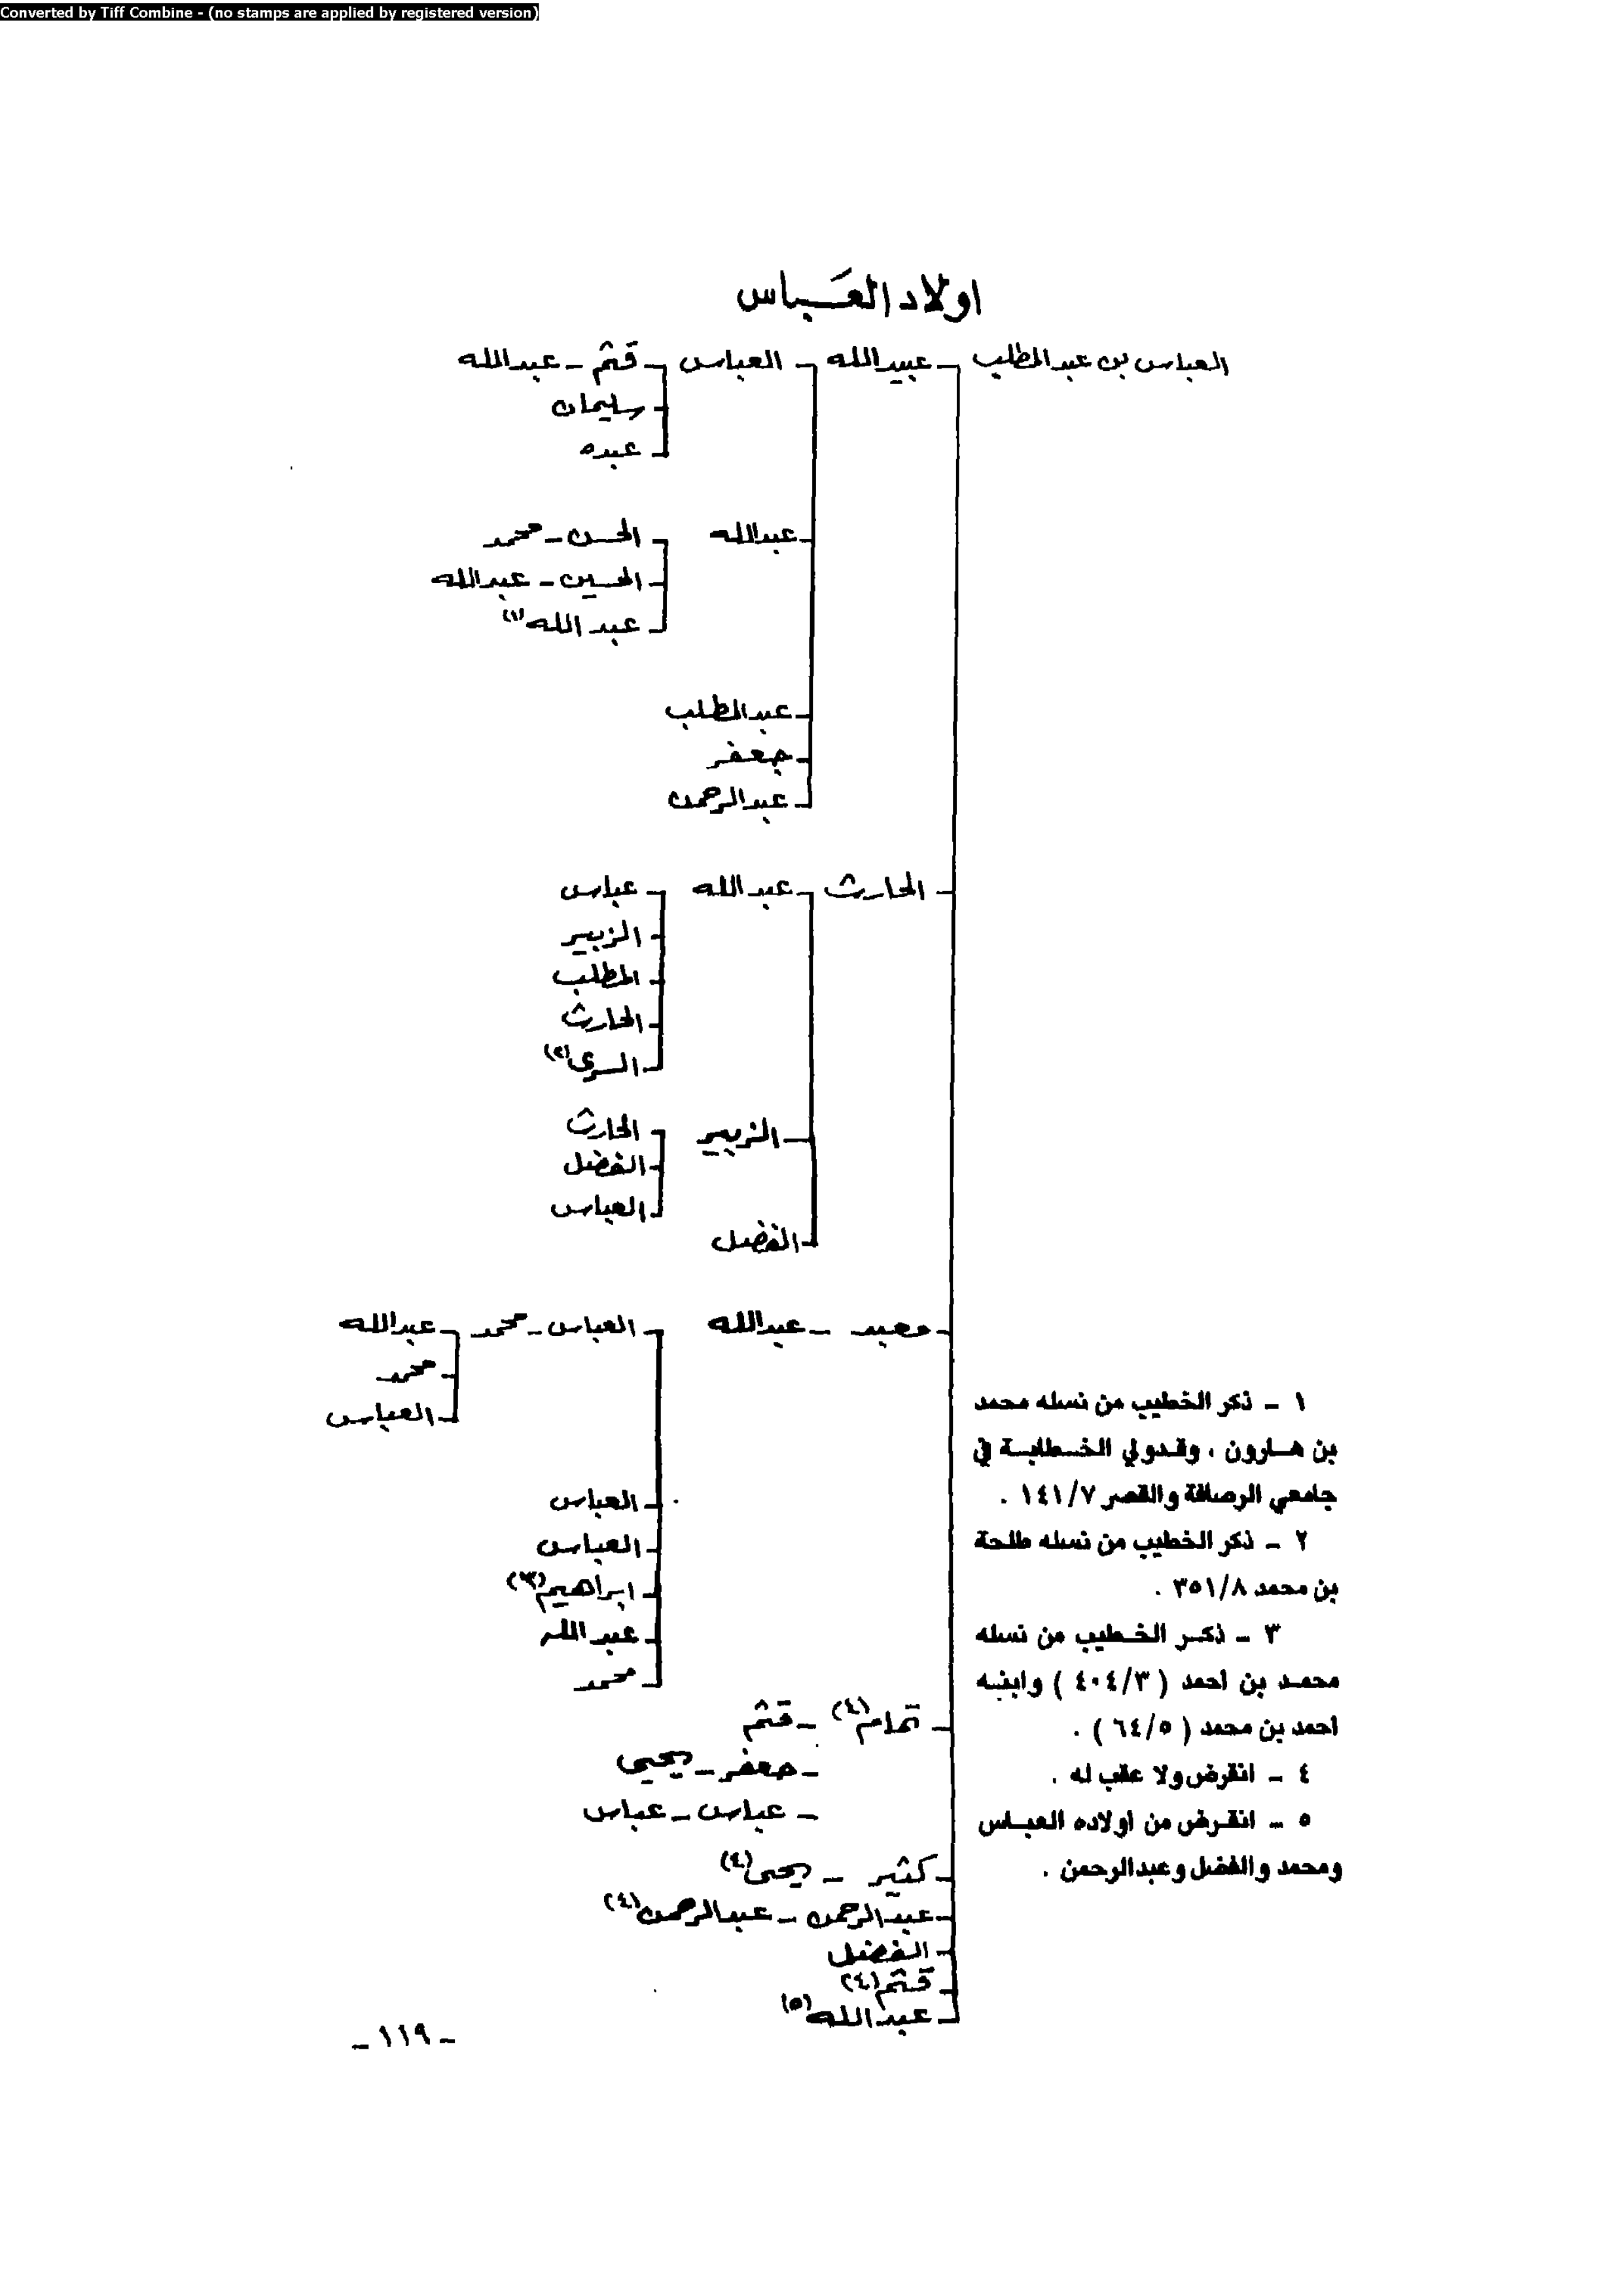 Converted by Tiff Combine - (no stamps are applied by registered version)
اولاد العباس
العباس بن عبد المطلب - عبيدالله - العباس - قثم - عبدالله
سليمان
عبده
عبدالله - الحسن - محمد
الحسين - عبدالله
عبد الله (١)
عبدالمطلب
جعفر
عبدالرحمن
الحارث - عبد الله - عباس
الزبير
المطلب
الحارث
السري (٢)
الزبير - الحارث
الفضل
العباس
الفضل
معبد - عبدالله - العباس - محمد - عبدالله
محمد
العباس
العباس
العباس
ابراهيم (٣)
عبد الله
محمد
تمام (٤) - قثم
- جعفر - يحيى
- عباس - عباس
كثير - يحيى (٤)
عبدالرحمن - عبدالرحمن (٤)
الفضل
قثم (٤)
عبدالله (٥)
١ - ذكر الخطيب من نسله محمد
بن هارون ، وقد ولي الخطابة في
جامعي الرصافة والقصر ١٤١/٧ .
٢ - ذكر الخطيب من نسله طلحة
بن محمد ٣٥١/٨ .
٣ - ذكر الخطيب من نسله
محمد بن احمد ( ٤٠٤/٣ ) وابنه
احمد بن محمد ( ٦٤/٥ ) .
٤ - انقرض ولا عقب له .
٥ - انقرض من اولاده العباس
ومحمد والفضل وعبدالرحمن .
- ١١٩ -